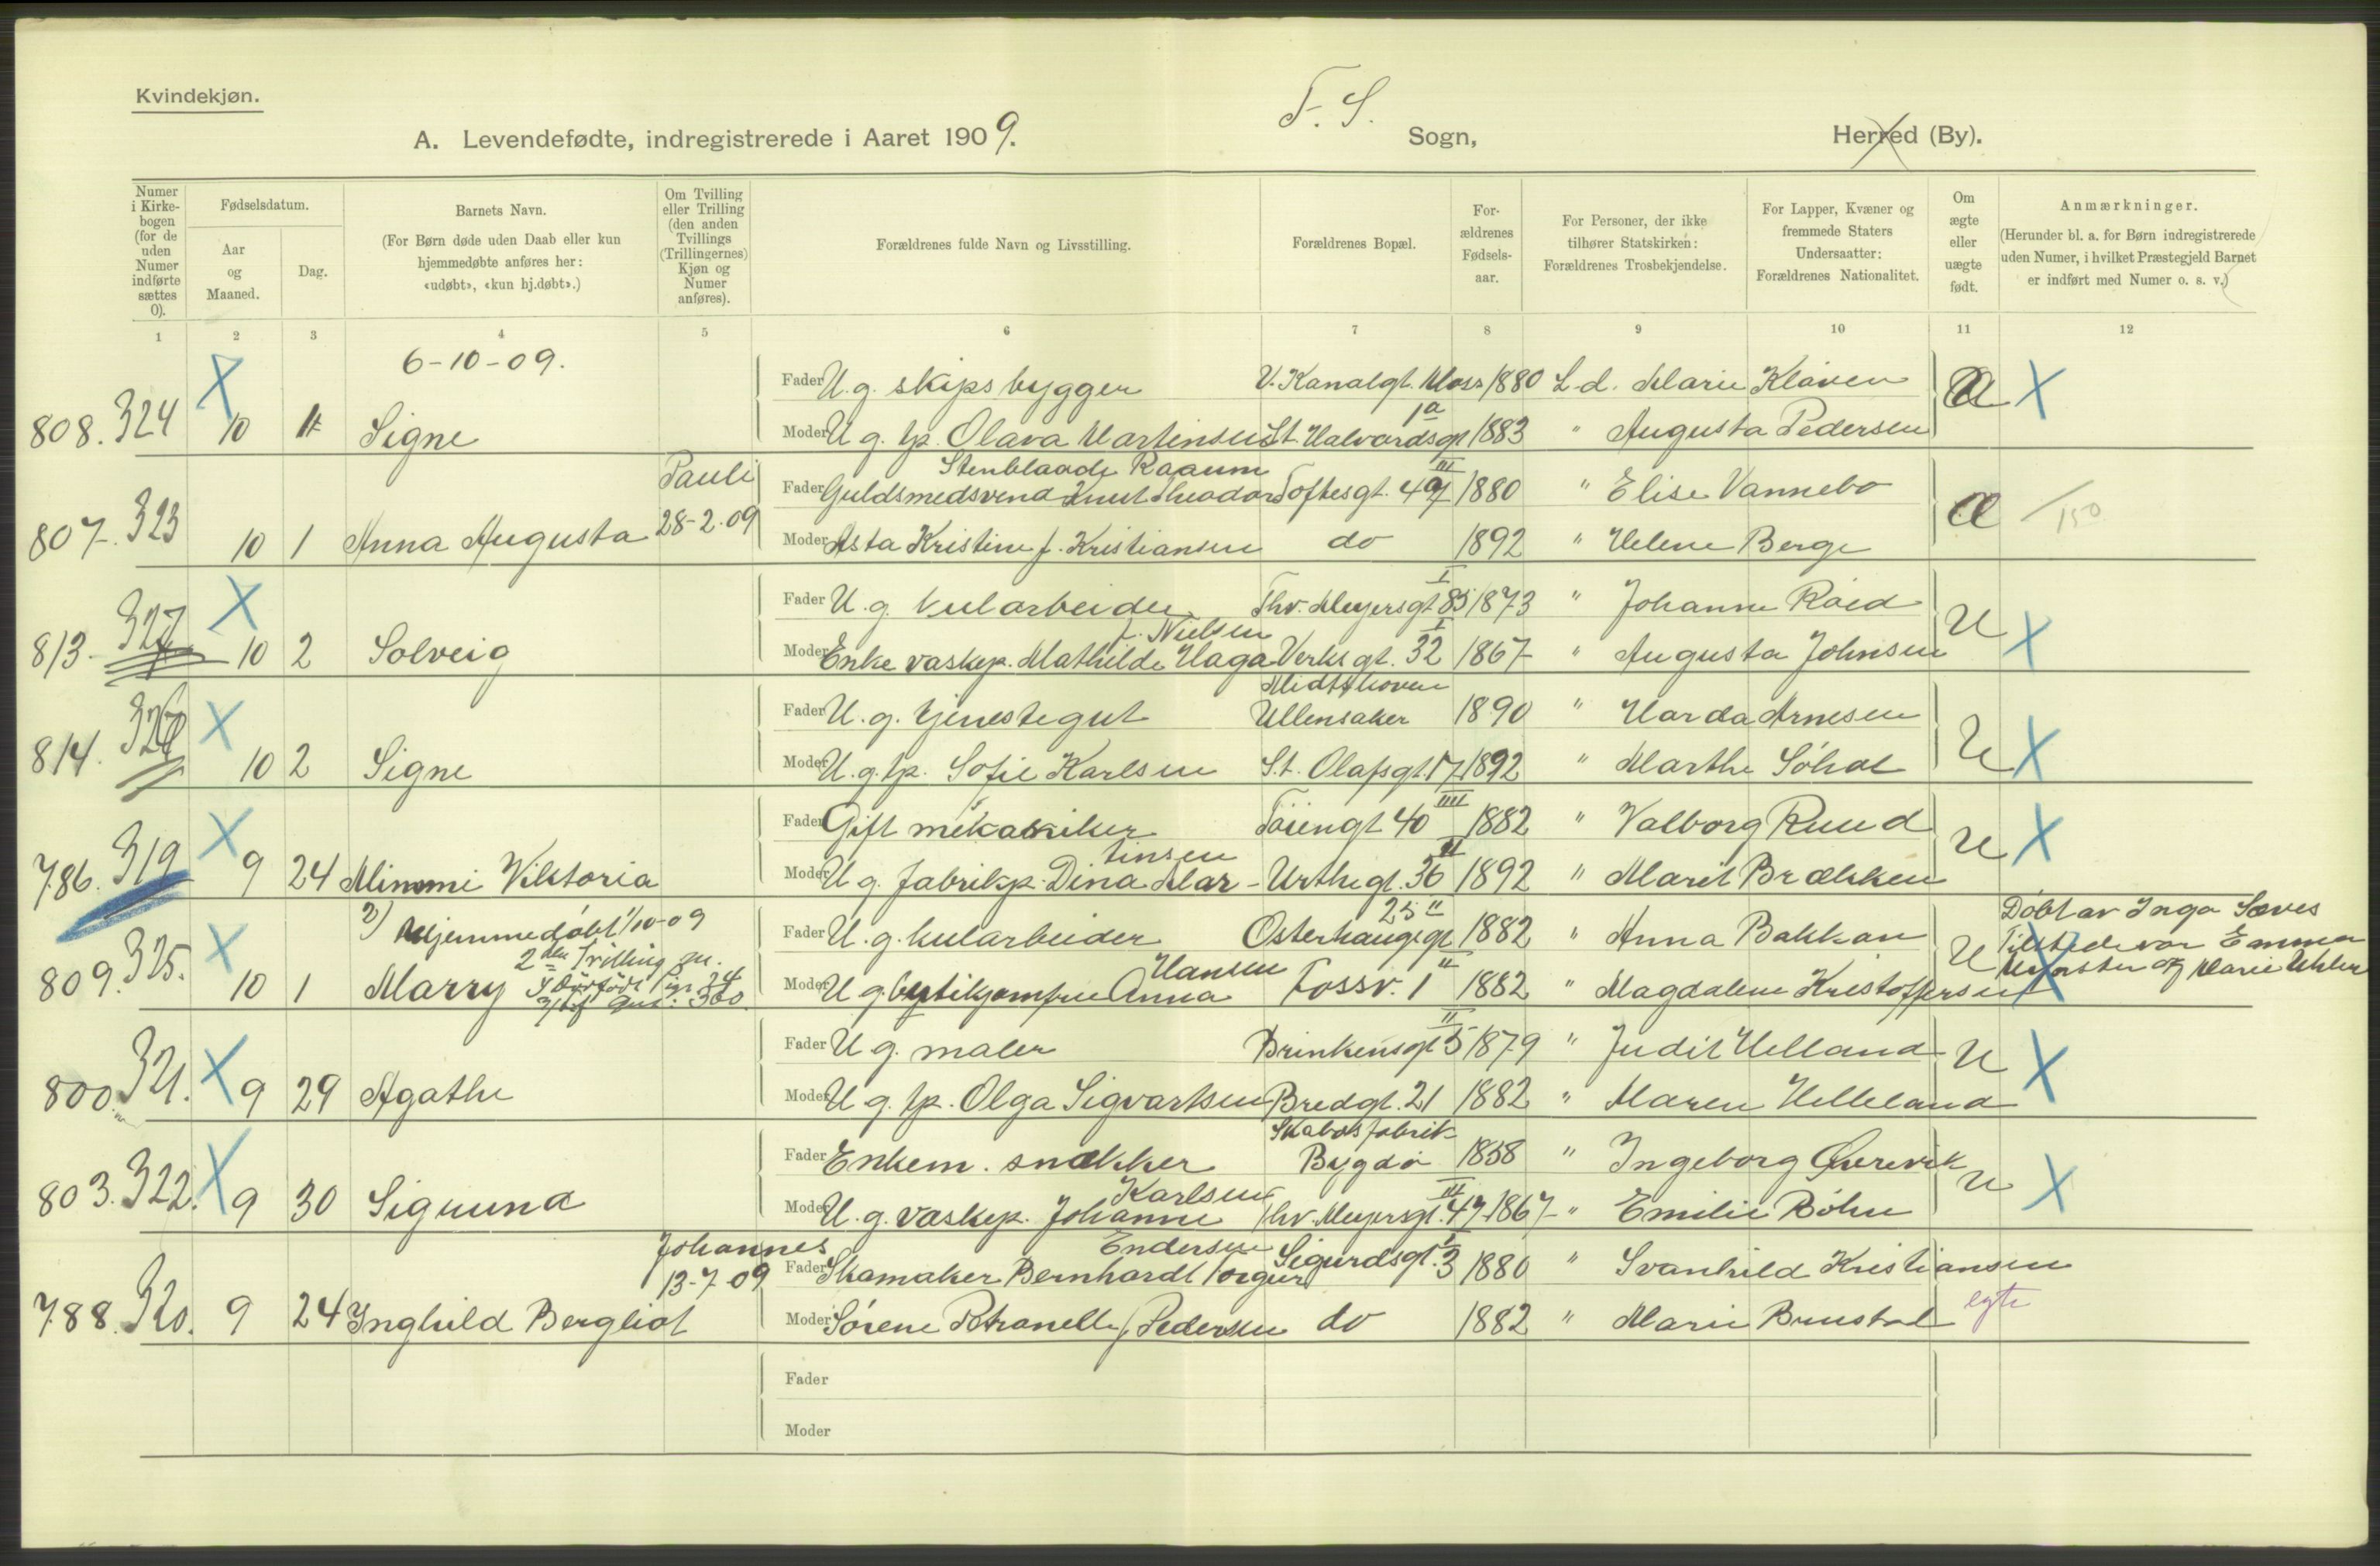 Kvindekjøn.
A. Levendefødte, indregistrerede i Aaret 1909. F. S. Sogn, Herred (By).
Numer i Kirkebogen (for de uden Numer indførte sættes 0).
Fødselsdatum.
Aar og Maaned.
Dag.
Barnets Navn.
(For Børn døde uden Daab eller kun hjemmedøbte anføres her: «udøbt», «kun hj.døbt».)
Om Tvilling eller Trilling (den anden Tvillings (Trillingernes) Kjøn og Numer anføres).
Forældrenes fulde Navn og Livsstilling.
Forældrenes Bopæl.
Forældrenes Fødselsaar.
For Personer, der ikke tilhører Statskirken: Forældrenes Trosbekjendelse.
For Lapper, Kvæner og fremmede Staters Undersaatter: Forældrenes Nationalitet.
Om ægte eller uægte født.
Anmærkninger.
(Herunder bl. a. for Børn indregistrerede uden Numer, i hvilket Præstegjeld Barnet er indført med Numer o. s. v.)
1 2 3 4 5 6 7 8 9 10 11 12
6-10-09.
Fader U. g. skipsbygger V. Kanalgt. Moss 1880 L.d. Marie Kláven
808. 324 10 1 Signe Moder U g. tp. Olava Martinsen St. Halvardsgt 1a 1883 " Augusta Pedersen
Pauli 28-2-09
Fader Guldsmedsvend Knut Theodor Stenblaade Raaum Toftesgt. 47 III 1880 " Elise Vannebo Æ 150
807. 323 10 1 Anna Augusta Moder Asta Kristine f. Kristiansen do 1892 " Helene Berge
Fader U. g. kularbeider Thv. Meyersgt 85 I 1873 " Johanne Róed U X
813. 327 10 2 Solveig Moder Enke vaskep. Mathilde Haga f. Nielsen Verksgt. 32 I 1867 " Augusta Johnsen
Fader U. g. tjenestegut Ullensaker 1890 " Harda Arnesen U X
814. 10 2 Signe Moder U. g. tp. Sofie Karlsen St. Olafsgt. 17 1892 " Marthe Sóhol
Fader Gift mekaniker Tóiengt 40 IIII 1882 " Valborg Ruud U X
786. 319 9 24 Mimmi Viktoria Moder U g. fabrikp. Dina Martinsen Urthegt. 36 II 1892 " Marit Brækken
2) Hjemmedóbt 1/10-09
2den Trilling
Fader U. g. kularbeider Osterhausgt 25 II 1882 " Anna Bakkan U Dóbt av Inga Sæves
809. 325. 10 1 Marry Moder U g. butikjomfru Anna Hansen Fossv. 1 II 1882 " Magdalene Kristoffersen
Tilstede var Emma
Fader U g. maler Brinkensgt 5 II 1879 " Judit Helland U X
800. 321. 9 29 Agathe Moder U g. tp. Olga Sigvartsen Bredgt. 21 1882 " Maren Helleland
Fader Enkem. snækker Skabos fabrik Bygdó 1858 " Ingeborg U X
803. 322. 9 30 Sigmund Moder U. g. vaskep. Johanne Karlsen Thv. Meyersgt. 47 III 1867 " Emilie Bóhn
Johannes 13-7-09
Fader Skomaker Bernhardt Torgeir Endersen Sigurdsgt. 3 I 1880 " Svanhild Kristiansen
788. 320. 9 24 Inghild Bergliot Moder Sórene Petronelle f. Pedersen do 1882 " Marie Brustol egte
Fader
Moder